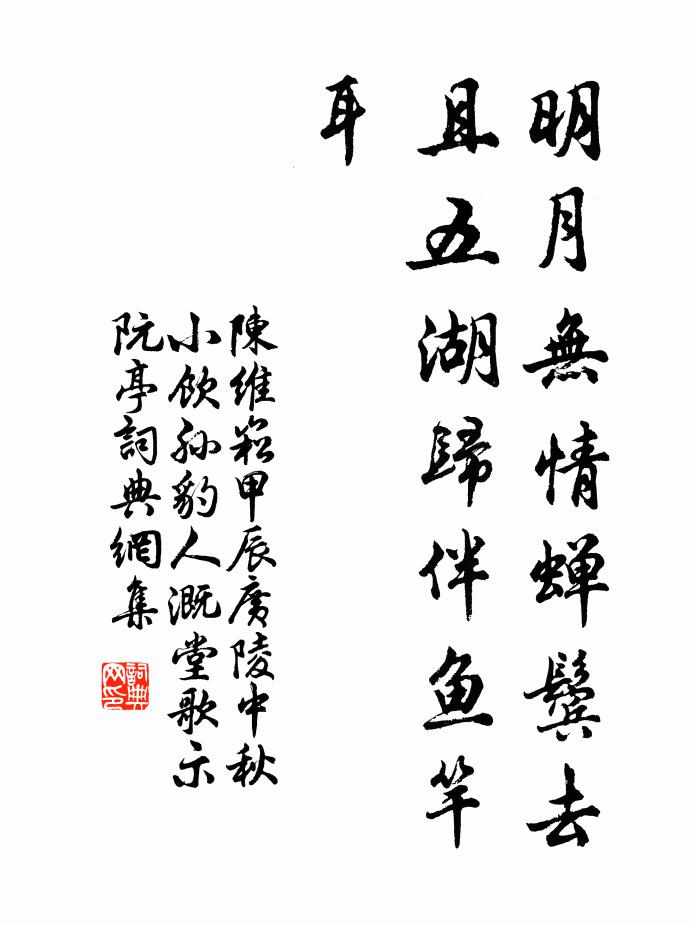 明月無情蟬鬢去
且五湖歸伴魚竿
耳
陳維崧甲辰廣陵中秋
小飲孫豹人溉堂歌示
阮亭詞典網集
詞典
网印